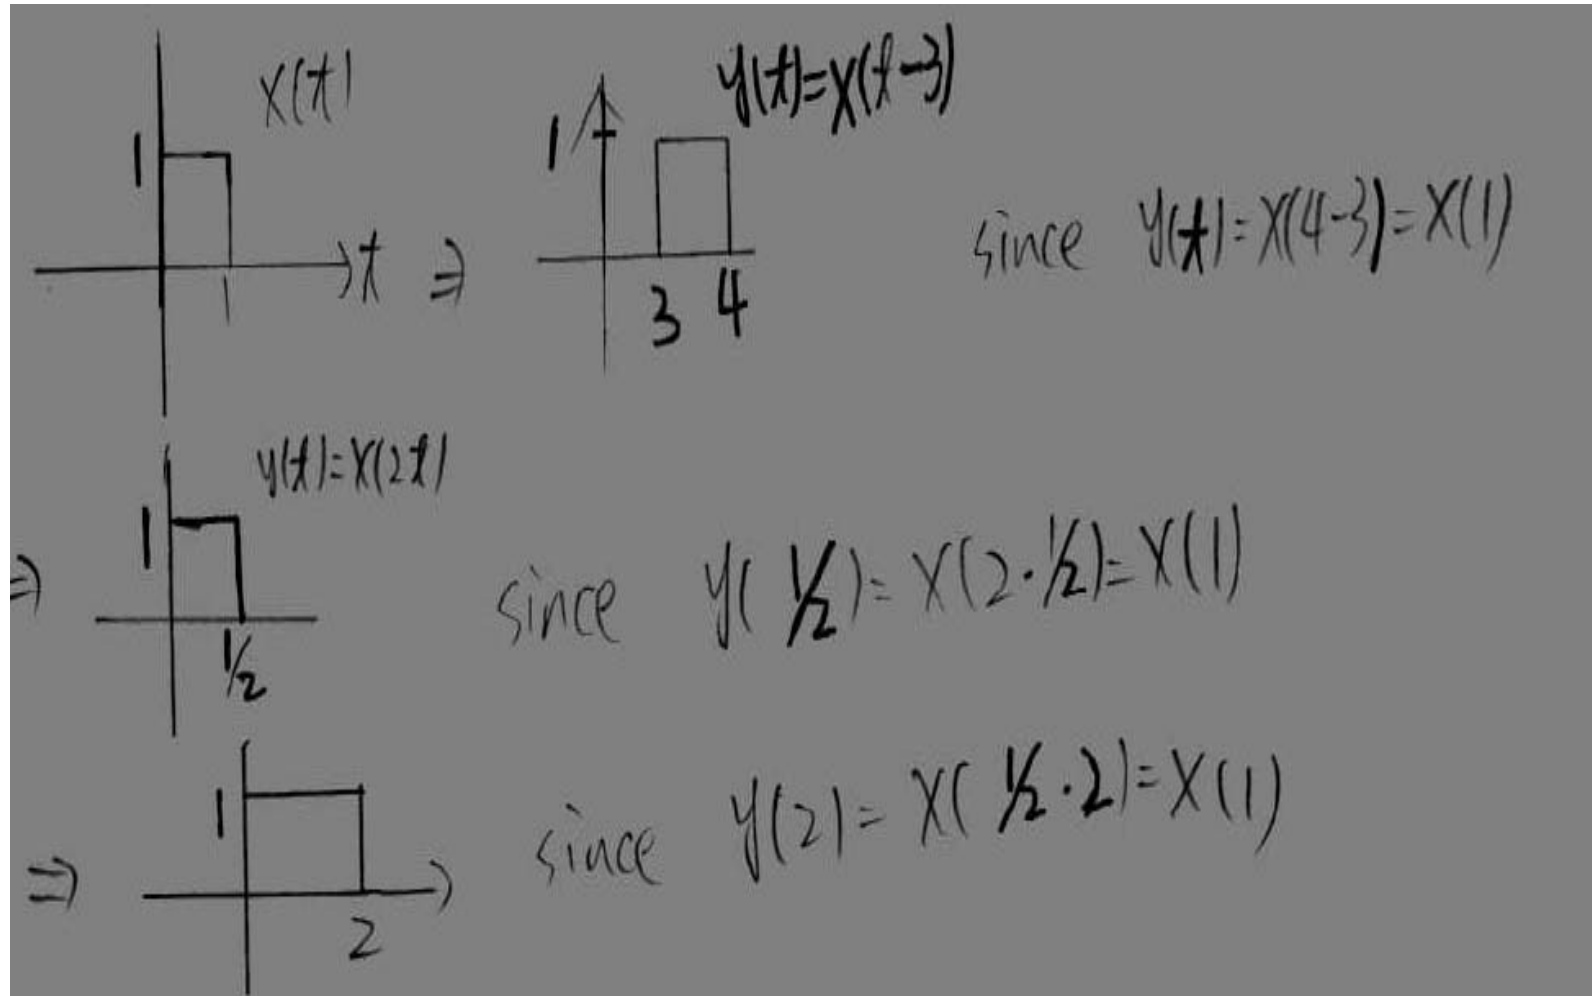 x(t)
1
1
t
⇒
y(t)=x(t-3)
1
3 4
since y(t)=x(4-3)=x(1)
⇒
y(t)=x(2t)
1
1/2
since y(1/2)=x(2·1/2)=x(1)
⇒
1
2
since y(2)=x(1/2·2)=x(1)